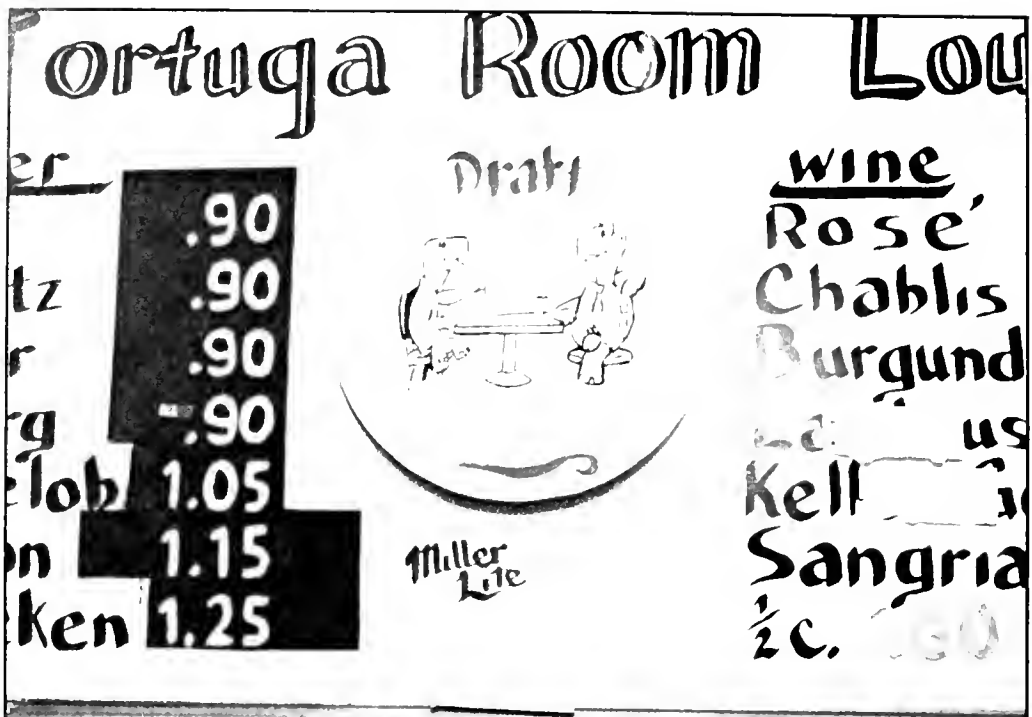 Tortuga Room Lou
er
.90
tz .90
r .90
rg .90
elob 1.05
on 1.15
ken 1.25
Draft
Miller
Lite
wine
Rosé
Chablis
Burgund
us
Kell
Sangria
½ c.